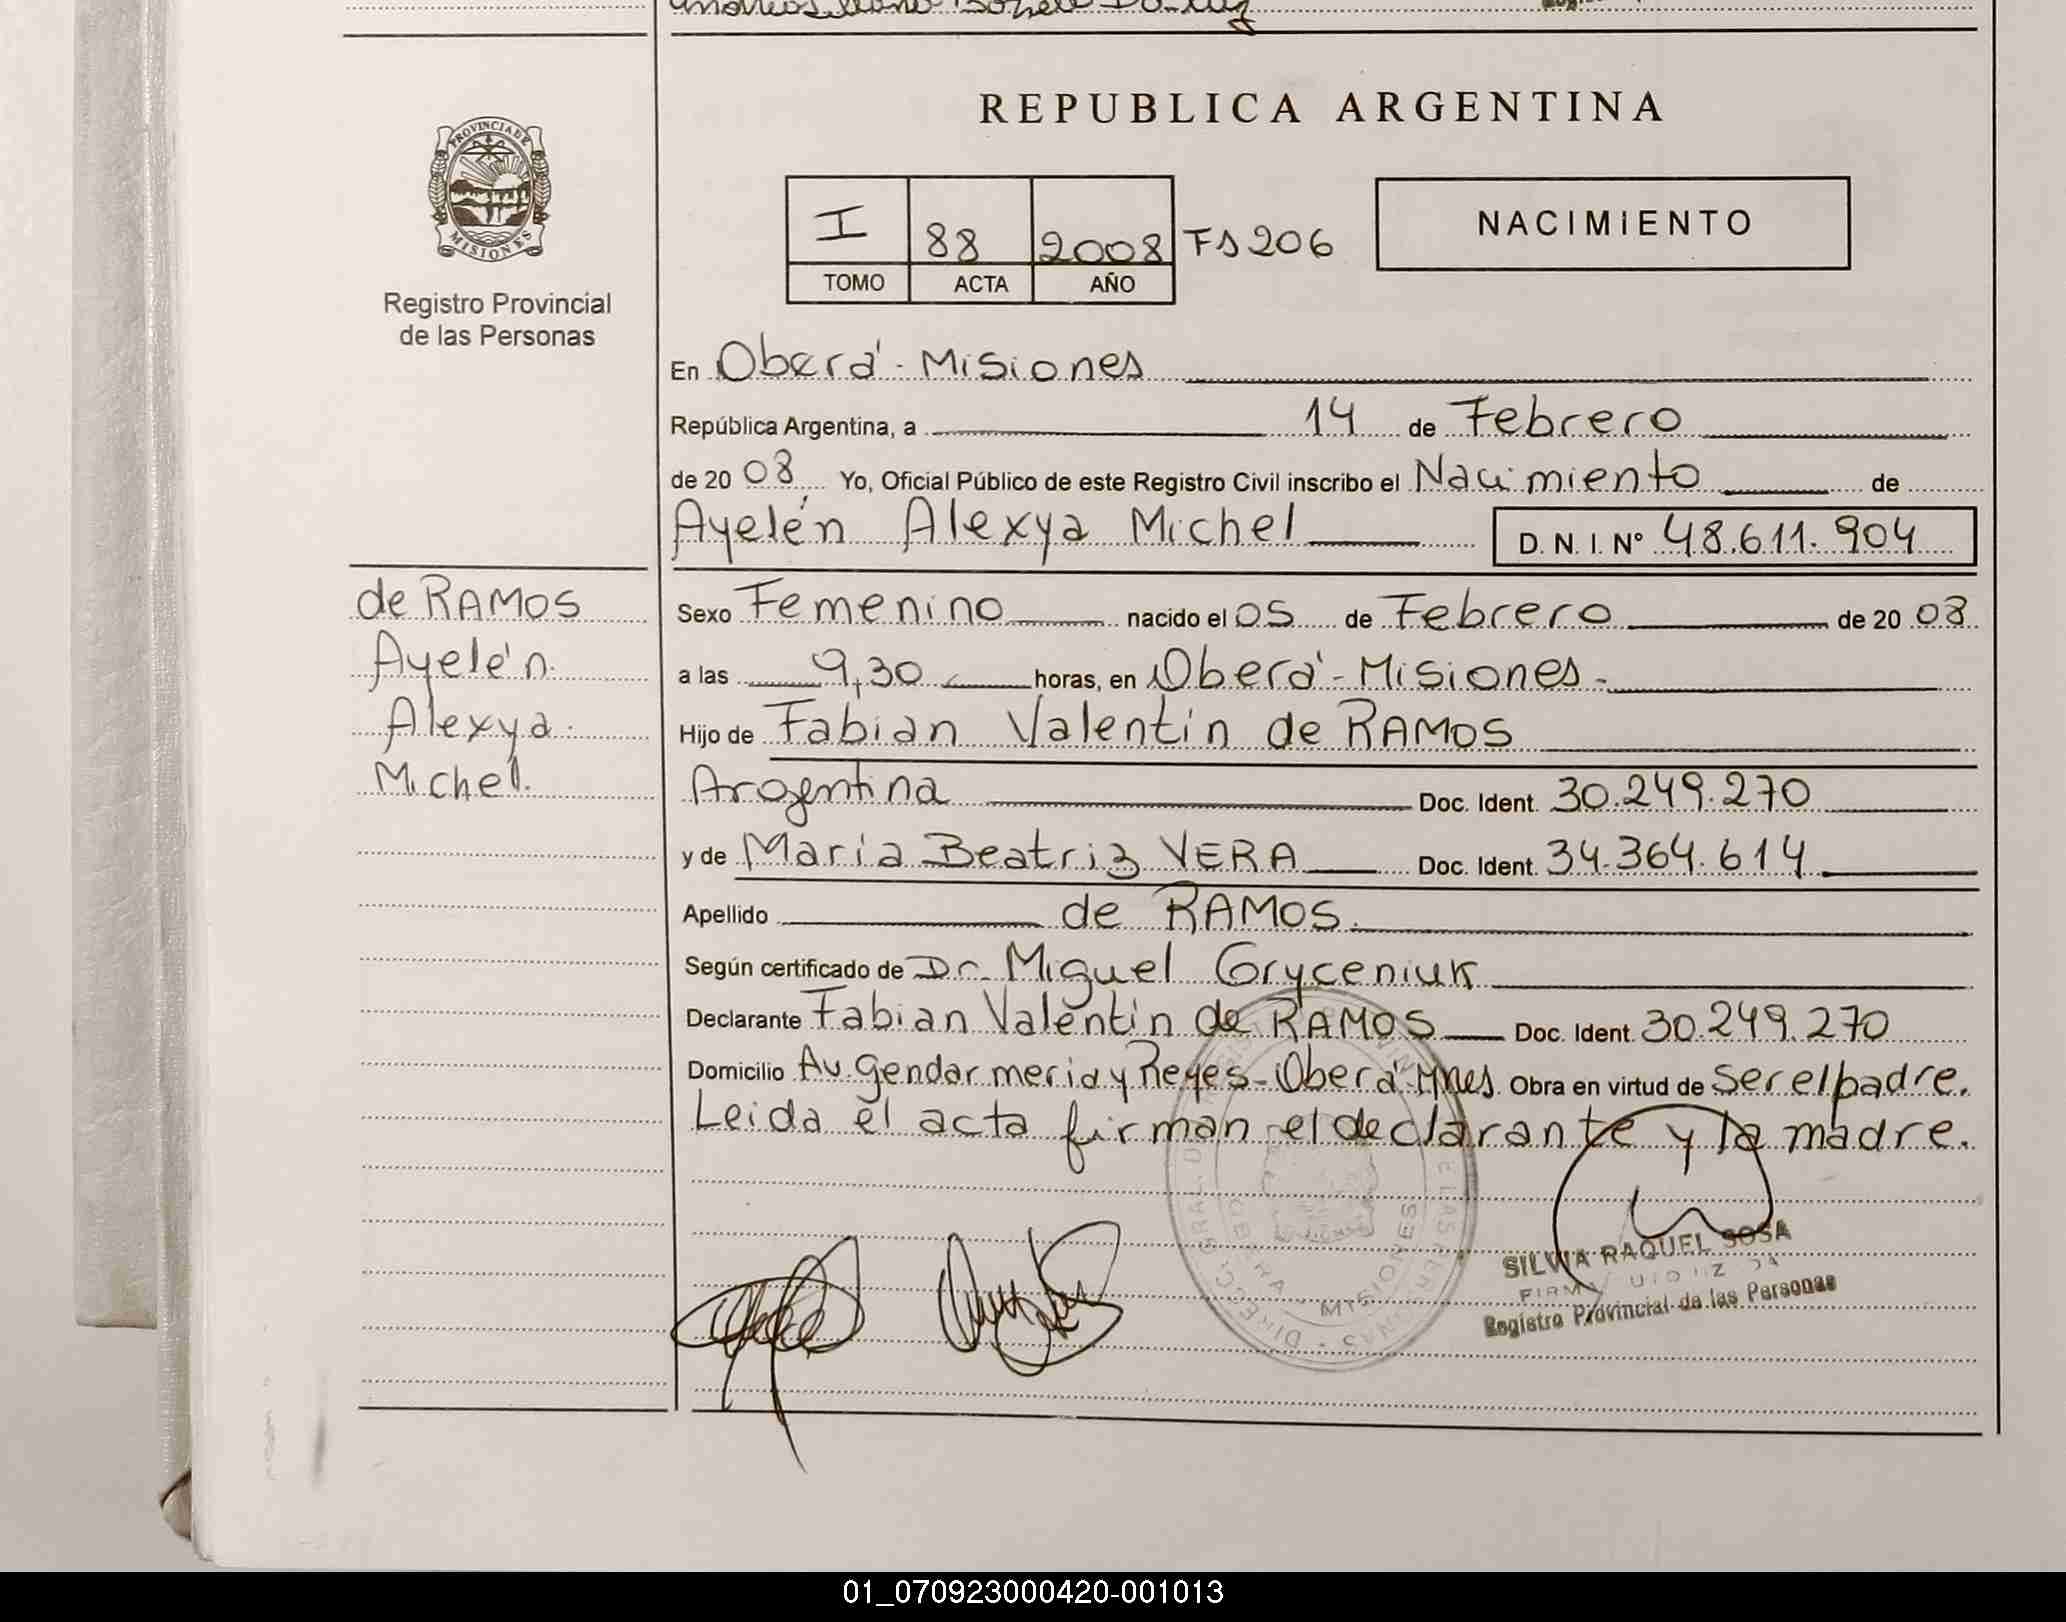 REPUBLICA ARGENTINA
PROVINCIA DE
MISIONES
Registro Provincial
de las Personas
I 88 2008 Fs 206
TOMO ACTA AÑO
NACIMIENTO
En Oberá - Misiones
República Argentina, a 14 de Febrero
de 20 08, Yo, Oficial Público de este Registro Civil inscribo el Nacimiento de
Ayelén Alexya Michel D. N. I. Nº 48.611.904
de RAMOS
Ayelén
Alexya
Michel.
Sexo Femenino nacido el 05 de Febrero de 20 08
a las 9,30 horas, en Oberá - Misiones -
Hijo de Fabian Valentin de RAMOS
Argentina Doc. Ident. 30.249.270
y de Maria Beatriz VERA Doc. Ident. 34.364.614
Apellido de RAMOS.
Según certificado de Dr. Miguel Gryceniuk
Declarante Fabian Valentin de RAMOS Doc. Ident. 30.249.270
Domicilio Av. Gendarmeria y Reyes - Oberá - Mnes. Obra en virtud de ser el padre.
Leida el acta firman el declarante y la madre.
MISIONES
SILVIA RAQUEL SOSA
Registro Provincial de las Personas
01_070923000420-001013